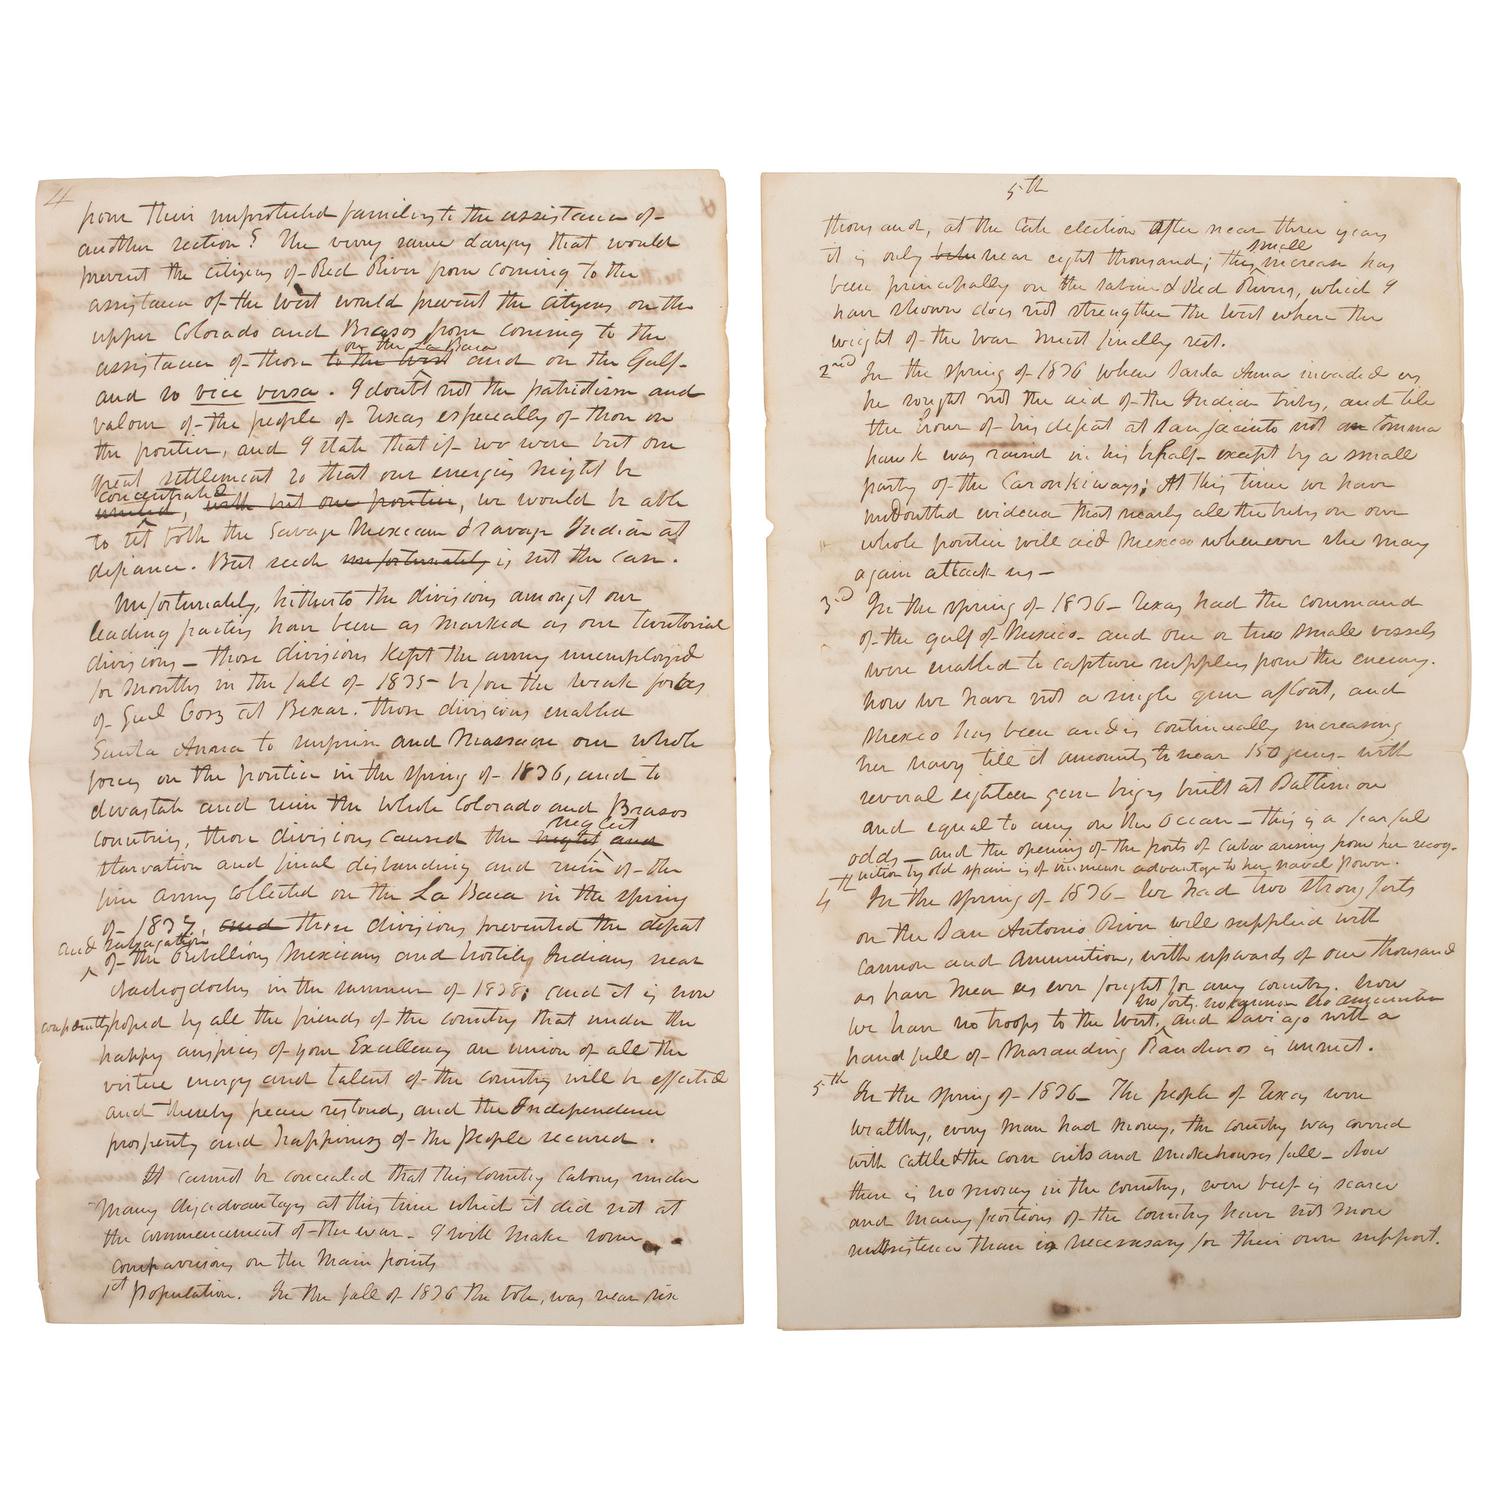 4
from their unprotected families to the assistance of
another section? The very same dangers that would
prevent the citizens of Red River from coming to the
assistance of the west would prevent the citizens on the
upper Colorado and Brasos from coming to the
on the La Baca
assistance of those to the West and on the Gulf
and so vice versa. I doubt not the patriotism and
valour of the people of Texas especially of those on
the frontier, and I state that if we were but one
great settlement so that our energies might be
concentrated
united, with but one frontier, we would be able
to set both the Savage Mexican & savage Indian at
defiance. But such unfortunately is not the case.
Unfortunately, hitherto the divisions amongst our
leading parties have been as marked as our territorial
divisions — those divisions kept the army unemployed
for months in the fall of 1835 before the weak forces
of Genl Cos at Bexar. those divisions enabled
Santa Anna to surprise and Massacre our whole
forces on the frontier in the spring of 1836, and to
devastate and ruin the whole Colorado and Brasos
neglect
countries, those divisions caused the and
starvation and final disbanding and ruin of the
fine army collected on the La Baca in the spring
of 1837, and those divisions prevented the defeat
and
of the rebellious Mexicans and hostile Indians near
Nachogdoches in the summer of 1838; and it is now
confidently hoped by all the friends of the country that under the
happy auspices of your Excellency an union of all the
virtue energy and talent of the country will be effected
and thereby peace restored, and the Independence
prosperity and happiness of the People secured.
It cannot be concealed that this Country labors under
Many disadvantages at this time which it did not at
the commencement of the war. I will make some
comparisons on the Main points
1st Population. In the fall of 1836 the vote, was near six
5th
thousand, at the late election after near three years
small
it is only near eight thousand; this increase has
been principally on the Sabine & Red Rivers, which I
have shown does not strengthen the west where the
weight of the War must finally rest.
2nd In the spring of 1836 when Santa Anna invaded us
he sought not the aid of the Indian tribes, and till
the hour of his defeat at San Jacinto not a Tomma
hawk was raised in his behalf except by a small
party of the Caronkiways; At this time we have
undoubted evidence that nearly all the tribes on our
whole frontier will aid Mexico whenever she may
again attack us —
3rd In the spring of 1836 — Texas had the command
of the gulf of Mexico and one or two small vessels
were enabled to capture supplies from the enemy.
now we have not a single gun afloat, and
Mexico has been and is continually increasing
her navy till it amounts to near 150 guns with
several eighteen gun brigs built at Baltimore
and equal to any on the Ocean — this is a fearful
odds — and the opening of the ports of Cuba arising from her recog-
nition by old spain is of immense advantage to her naval power.
4th In the spring of 1836 — We had two strong forts
on the San Antonio River well supplied with
cannon and Ammunition, with upwards of one thousand
as brave Men as ever fought for any country. Now
no forts no cannon no ammunition
we have no troops to the West, and Savi ago with a
hand full of Marauding Rancheros is unmet.
5th In the spring of 1836 — The people of Texas were
wealthy, every Man had Money, the country was covered
with cattle & the corn cribs and Smokehouses full — Now
there is no money in the country, even beef is scarce
and Many portions of the country have not more
subsistence than is necessary for their own support.